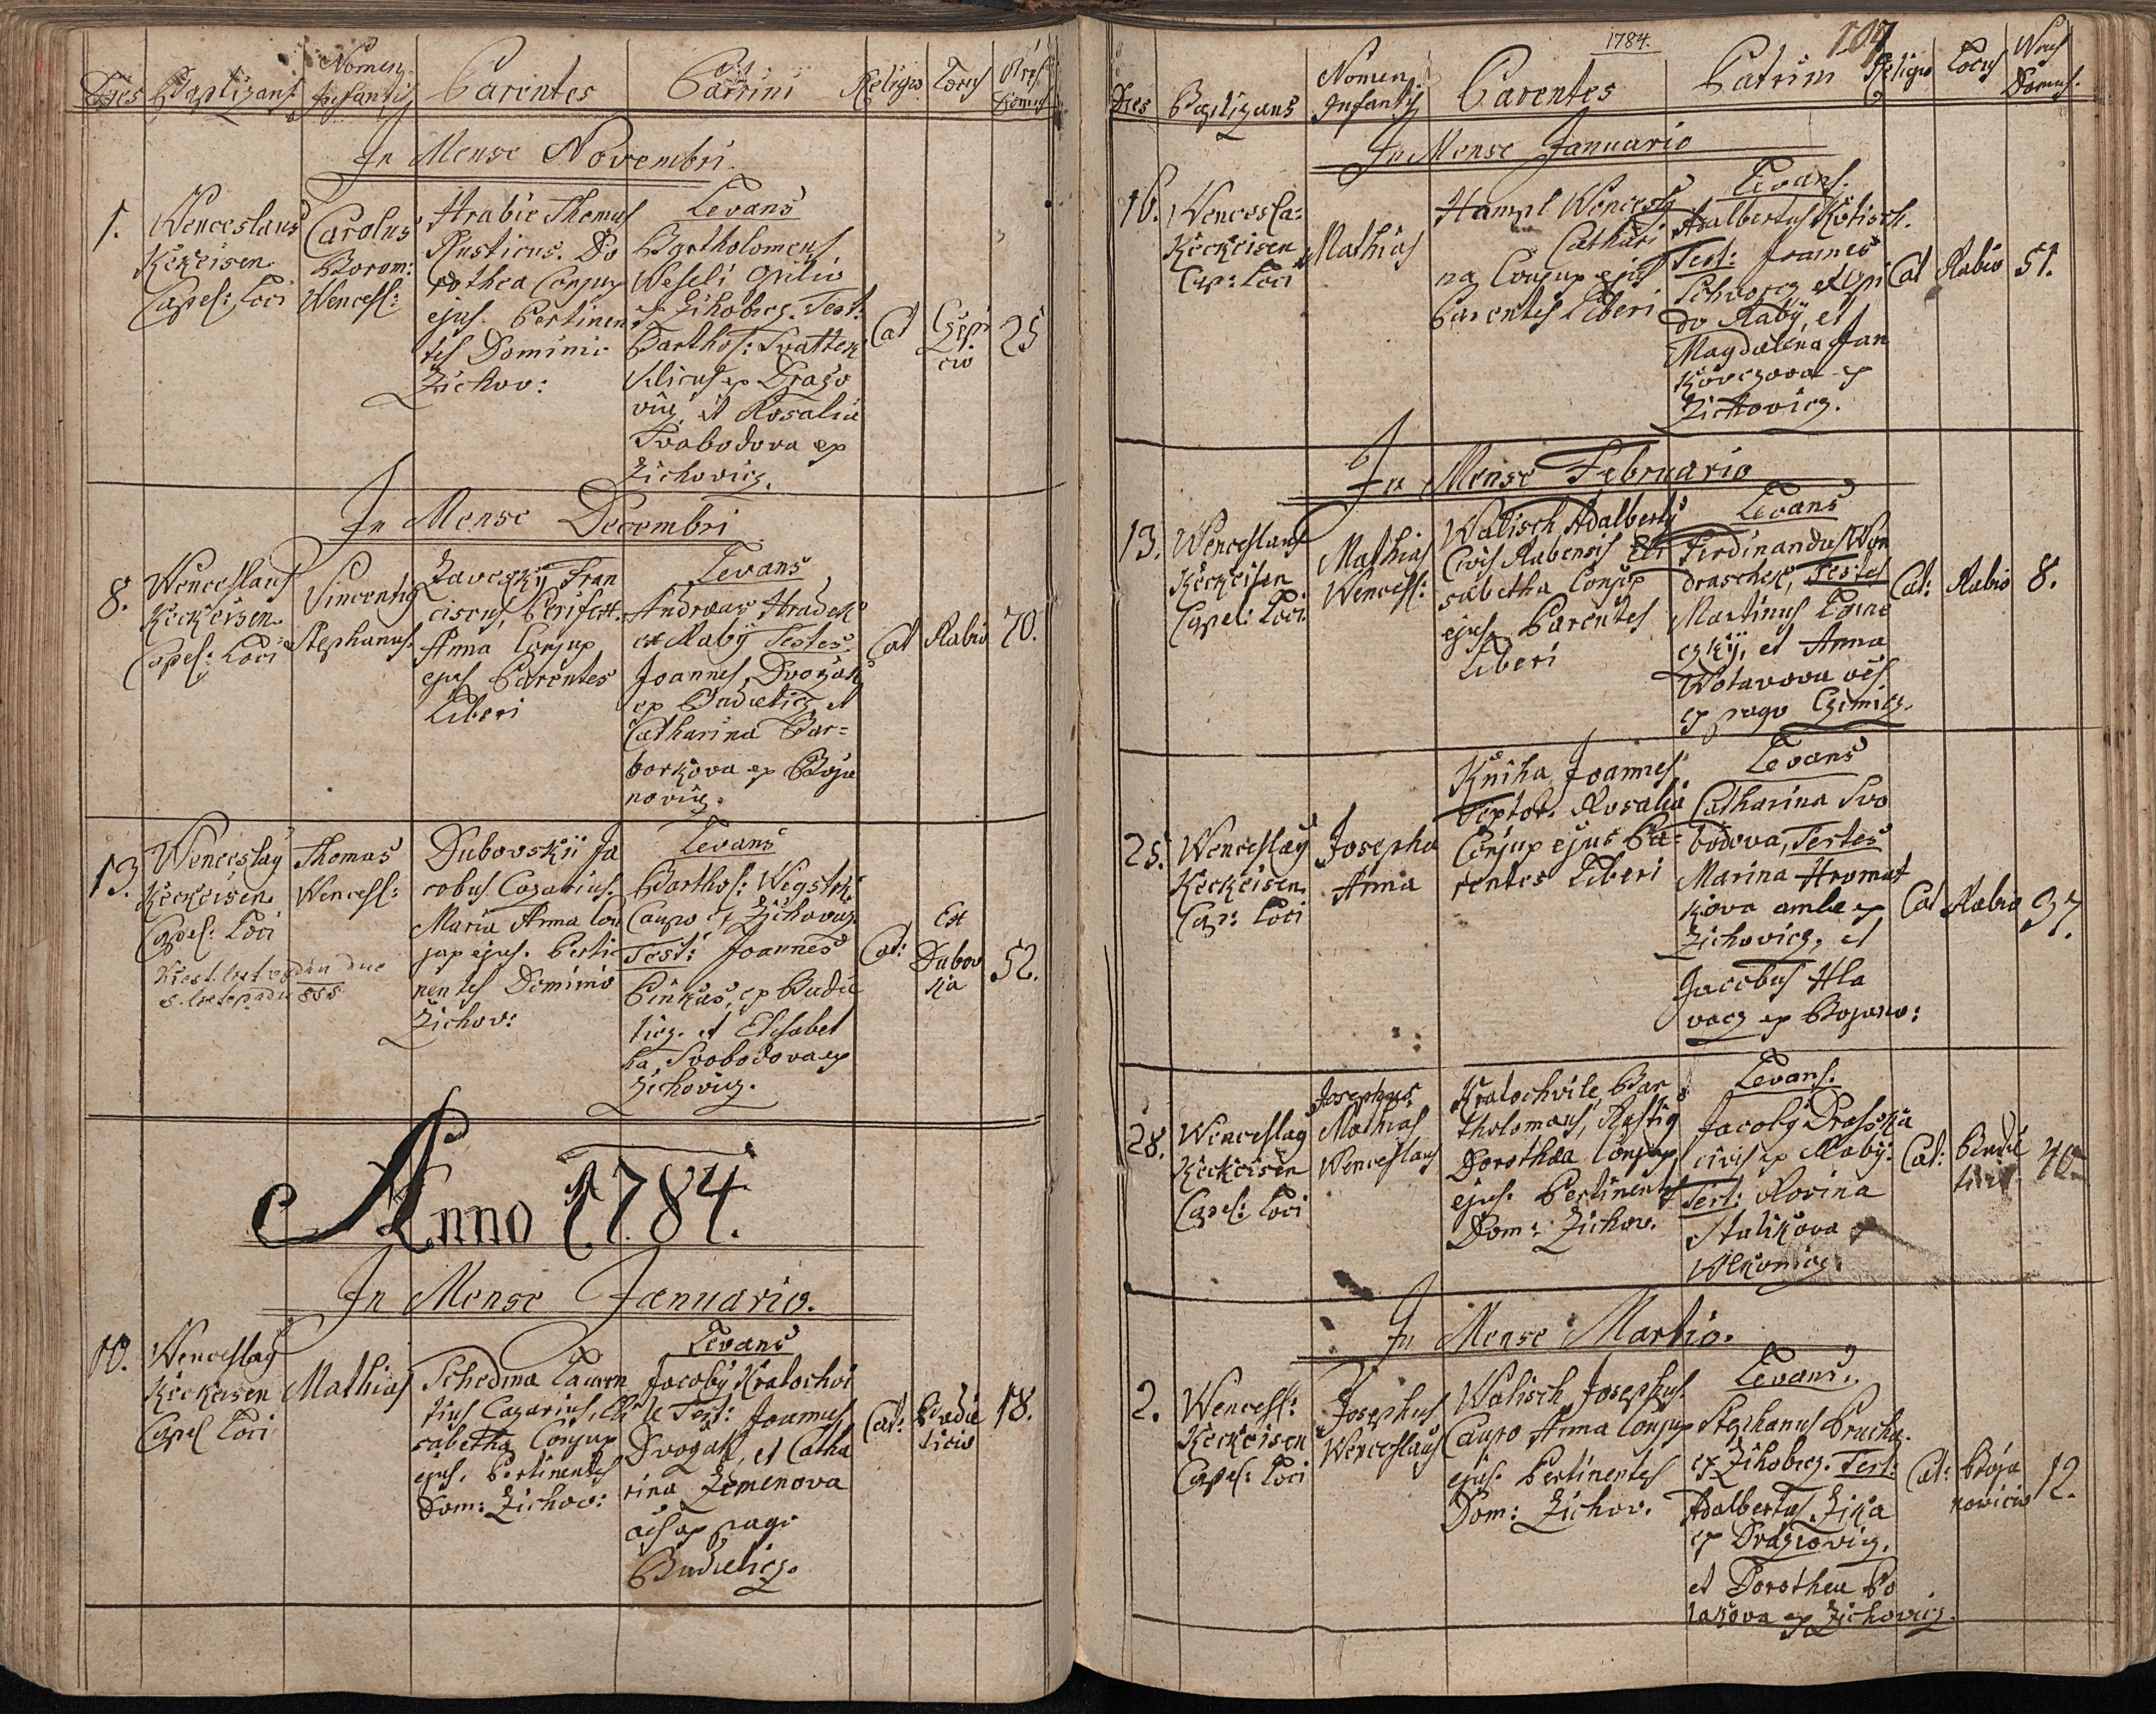 Dies Baptizans Nomen Infantis Parentes Patrini Religio Locus Nrus Domus
In Mense Novembri
1. Wenceslaus Keckeisen Capel: Loci
Carolus Borom: Wencesl:
Hrabie Thomas
Rusticus. Do
rothea Conjux
ejus. Pertinen
tes Dominio
Zichov:
Levans
Bartholomeus
Weseli Opilio
ex Zihobecz. Test:
Barthol: Swattek
Vilicus ex Drazo
vicz, et Rosalia
Svobodova ex
Zichovicz.
Cat
Czepi
cio
25
In Mense Decembri
8. Wenceslaus
Keckeisen
Capel: Loci
Vincentius
Stephanus.
Zavesky Fran
ciscus,
Anna Conjux
ejus Parentes
Liberi
Levans
Andreas Hradek
ex Raby Testes
Joannes Dvorzak
ex Budieticz, et
Catharina Bar=
borkova ex Boja
novicz.
Cat Rabio 70.
13. Wenceslaus
Keckeisen
Capel: Loci
Thomas
Wencesl:
Dubovskii Ja
cobus Cazarius.
Maria Anna Con
jux ejus. Perti
nentes Dominio
Zichov:
Levans
Barthol: Wigstek
Caupo ex Zichovicz
Test: Joannes
Pinkas, ex Budie
ticz. et Elisabet
ha, Svobodova ex
Zichovicz.
Cat:
Ex
Dubov
ka
52.
Křest. list vydán dne
5. listopadu 888
Anno 1784.
In Mense Januario.
10. Wenceslaus
Keckeisen
Capel Loci
Mathias
Schedina Lauren
tius Cazarius, Eli
sabetha Conjux
ejus, Pertinentes
Dom: Zichov:
Levans
Jacobus Kratochvi
le Test: Joannes
Dvorzak, et Catha
rina Zemenova
oes ex pago
Budieticz.
Cat:
Budie
ticio
18.
1784.
107
Dies Baptizans Nomen Infantis Parentes Patrini Religio Locus Nrus Domus.
In Mense Januario
16. Wencesla:
Keckeisen
Cap: Loci
Mathias
Hampl Wencesl
Cathari
na Conjux ejus
Parentes Liberi
Levans.
Adalbertus Kotisch.
Test: Joannes
Schvorcz ex Opi
do Raby, et
Magdalena Jan
kovczova ex
Zichovicz.
Cat Rabio 51.
In Mense Februario
13. Wenceslaus
Keckeisen
Capel: Loci
Mathias
Wencesl:
Walisch Adalbertus
Civis Rabensis Eli
sabetha Conjux
ejus, Parentes
Liberi
Levans
Ferdinandus Won
draschek, Testes
Martinus Lome
czky, et Anna
Wotavova oes
ex pago Czimicz.
Cat: Rabio 8.
25. Wenceslaus
Keckeisen
Cap: Loci
Josepha
Anna
Kniha Joannes
Textor. Rosalia
Conjux ejus Pa=
rentes Liberi
Levans
Catharina Svo
bodova, Testes
Marina Hromat
kova ambe ex
Zichovicz, et
Jacobus Hla
vacz ex Bojano:
Cat Rabio 37.
28. Wenceslaus
Keckeisen
Capel: Loci
Josephus
Mathias
Wenceslaus
Kratochvile Bar
tholomaus, Rustiq
Dorothæa Conjux
ejus. Pertinentes
Dom: Zichov.
Levans.
Jacobus Drasska
civis ex Raby.
Test: Rosina
Stulikova ex
Wlkonicz.
Cat: Budie
ticz. 40
In Mense Martio.
2. Wencesl:
Keckeisen
Capel: Loci
Josephus
Wenceslaus
Walisch Josephus.
Caupo Anna Conjux
ejus. Pertinentes
Dom: Zichov.
Levans.
Stephanus Prucha.
ex Zihobecz. Test:
Adalbertus Zika
ex Drazowicz.
et Dorothea Po
lakova ex Zichovicz.
Cat: Boja
novicio 12.